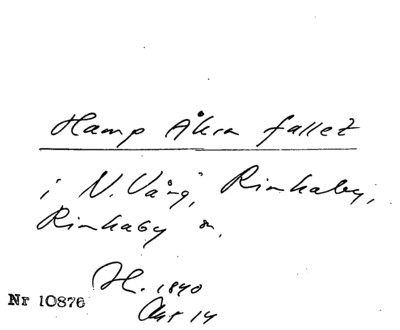 Hamp Åkra fallet
i N. Vång, Rinkaby,
Rinkaby sn.
H. 1840
Akt 14
Nr 10876